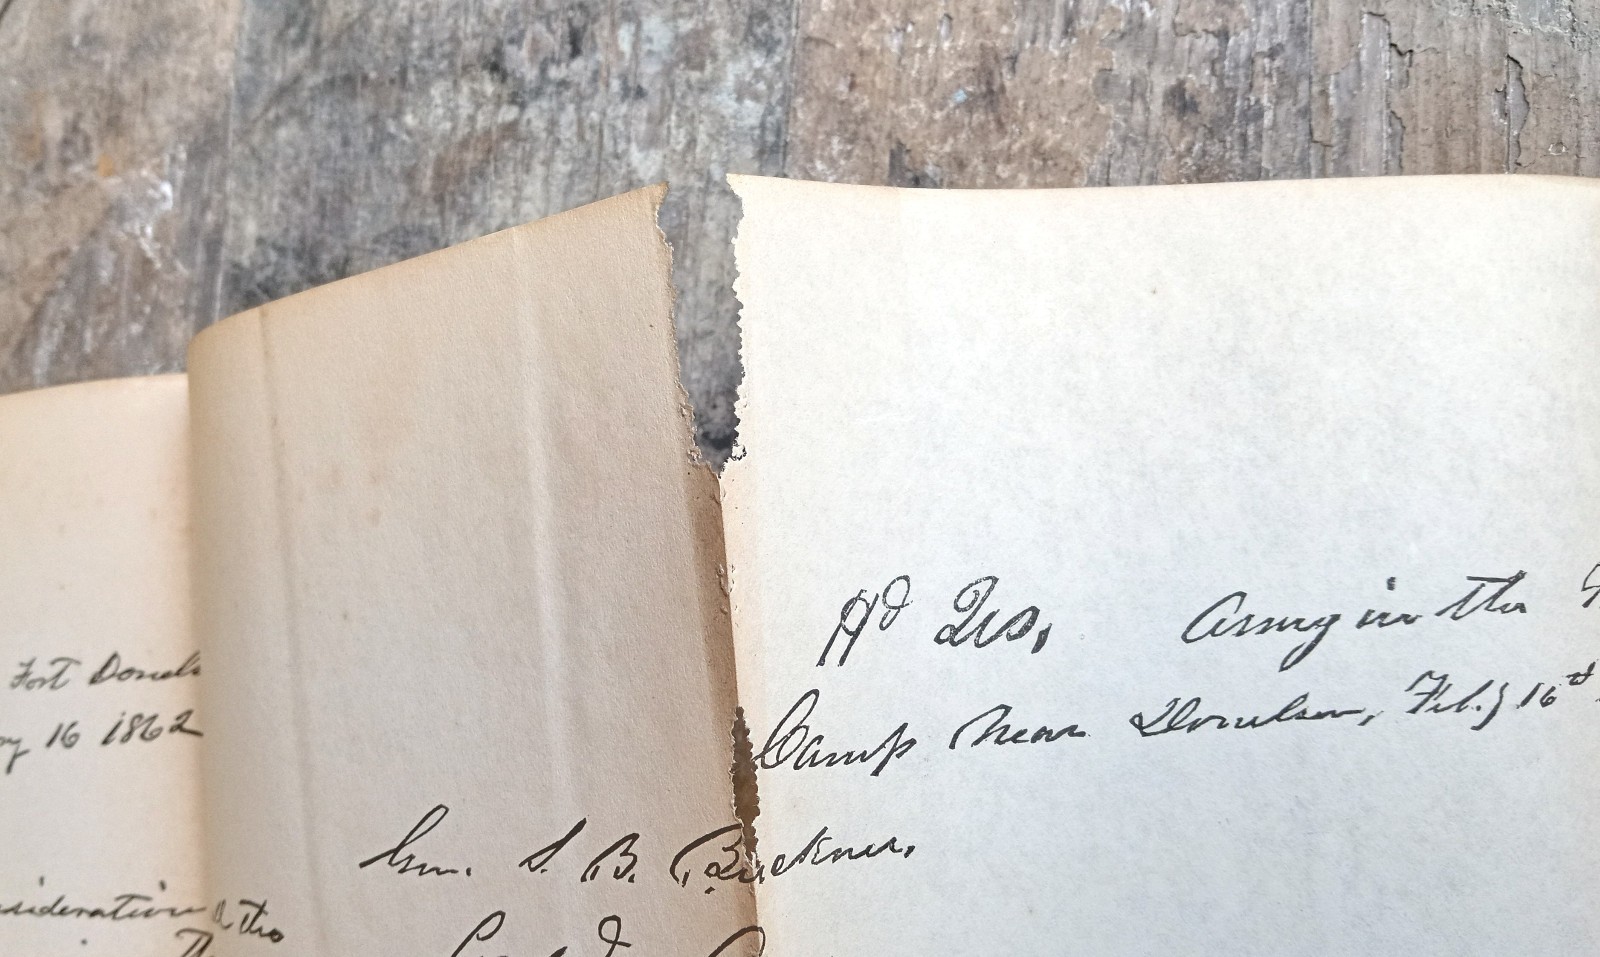 Fort Donels
16 1862
sideration
Hd Qrs, Army in the
Camp near Donelson, Feb.y 16th
Gen. S. B. Buckner,